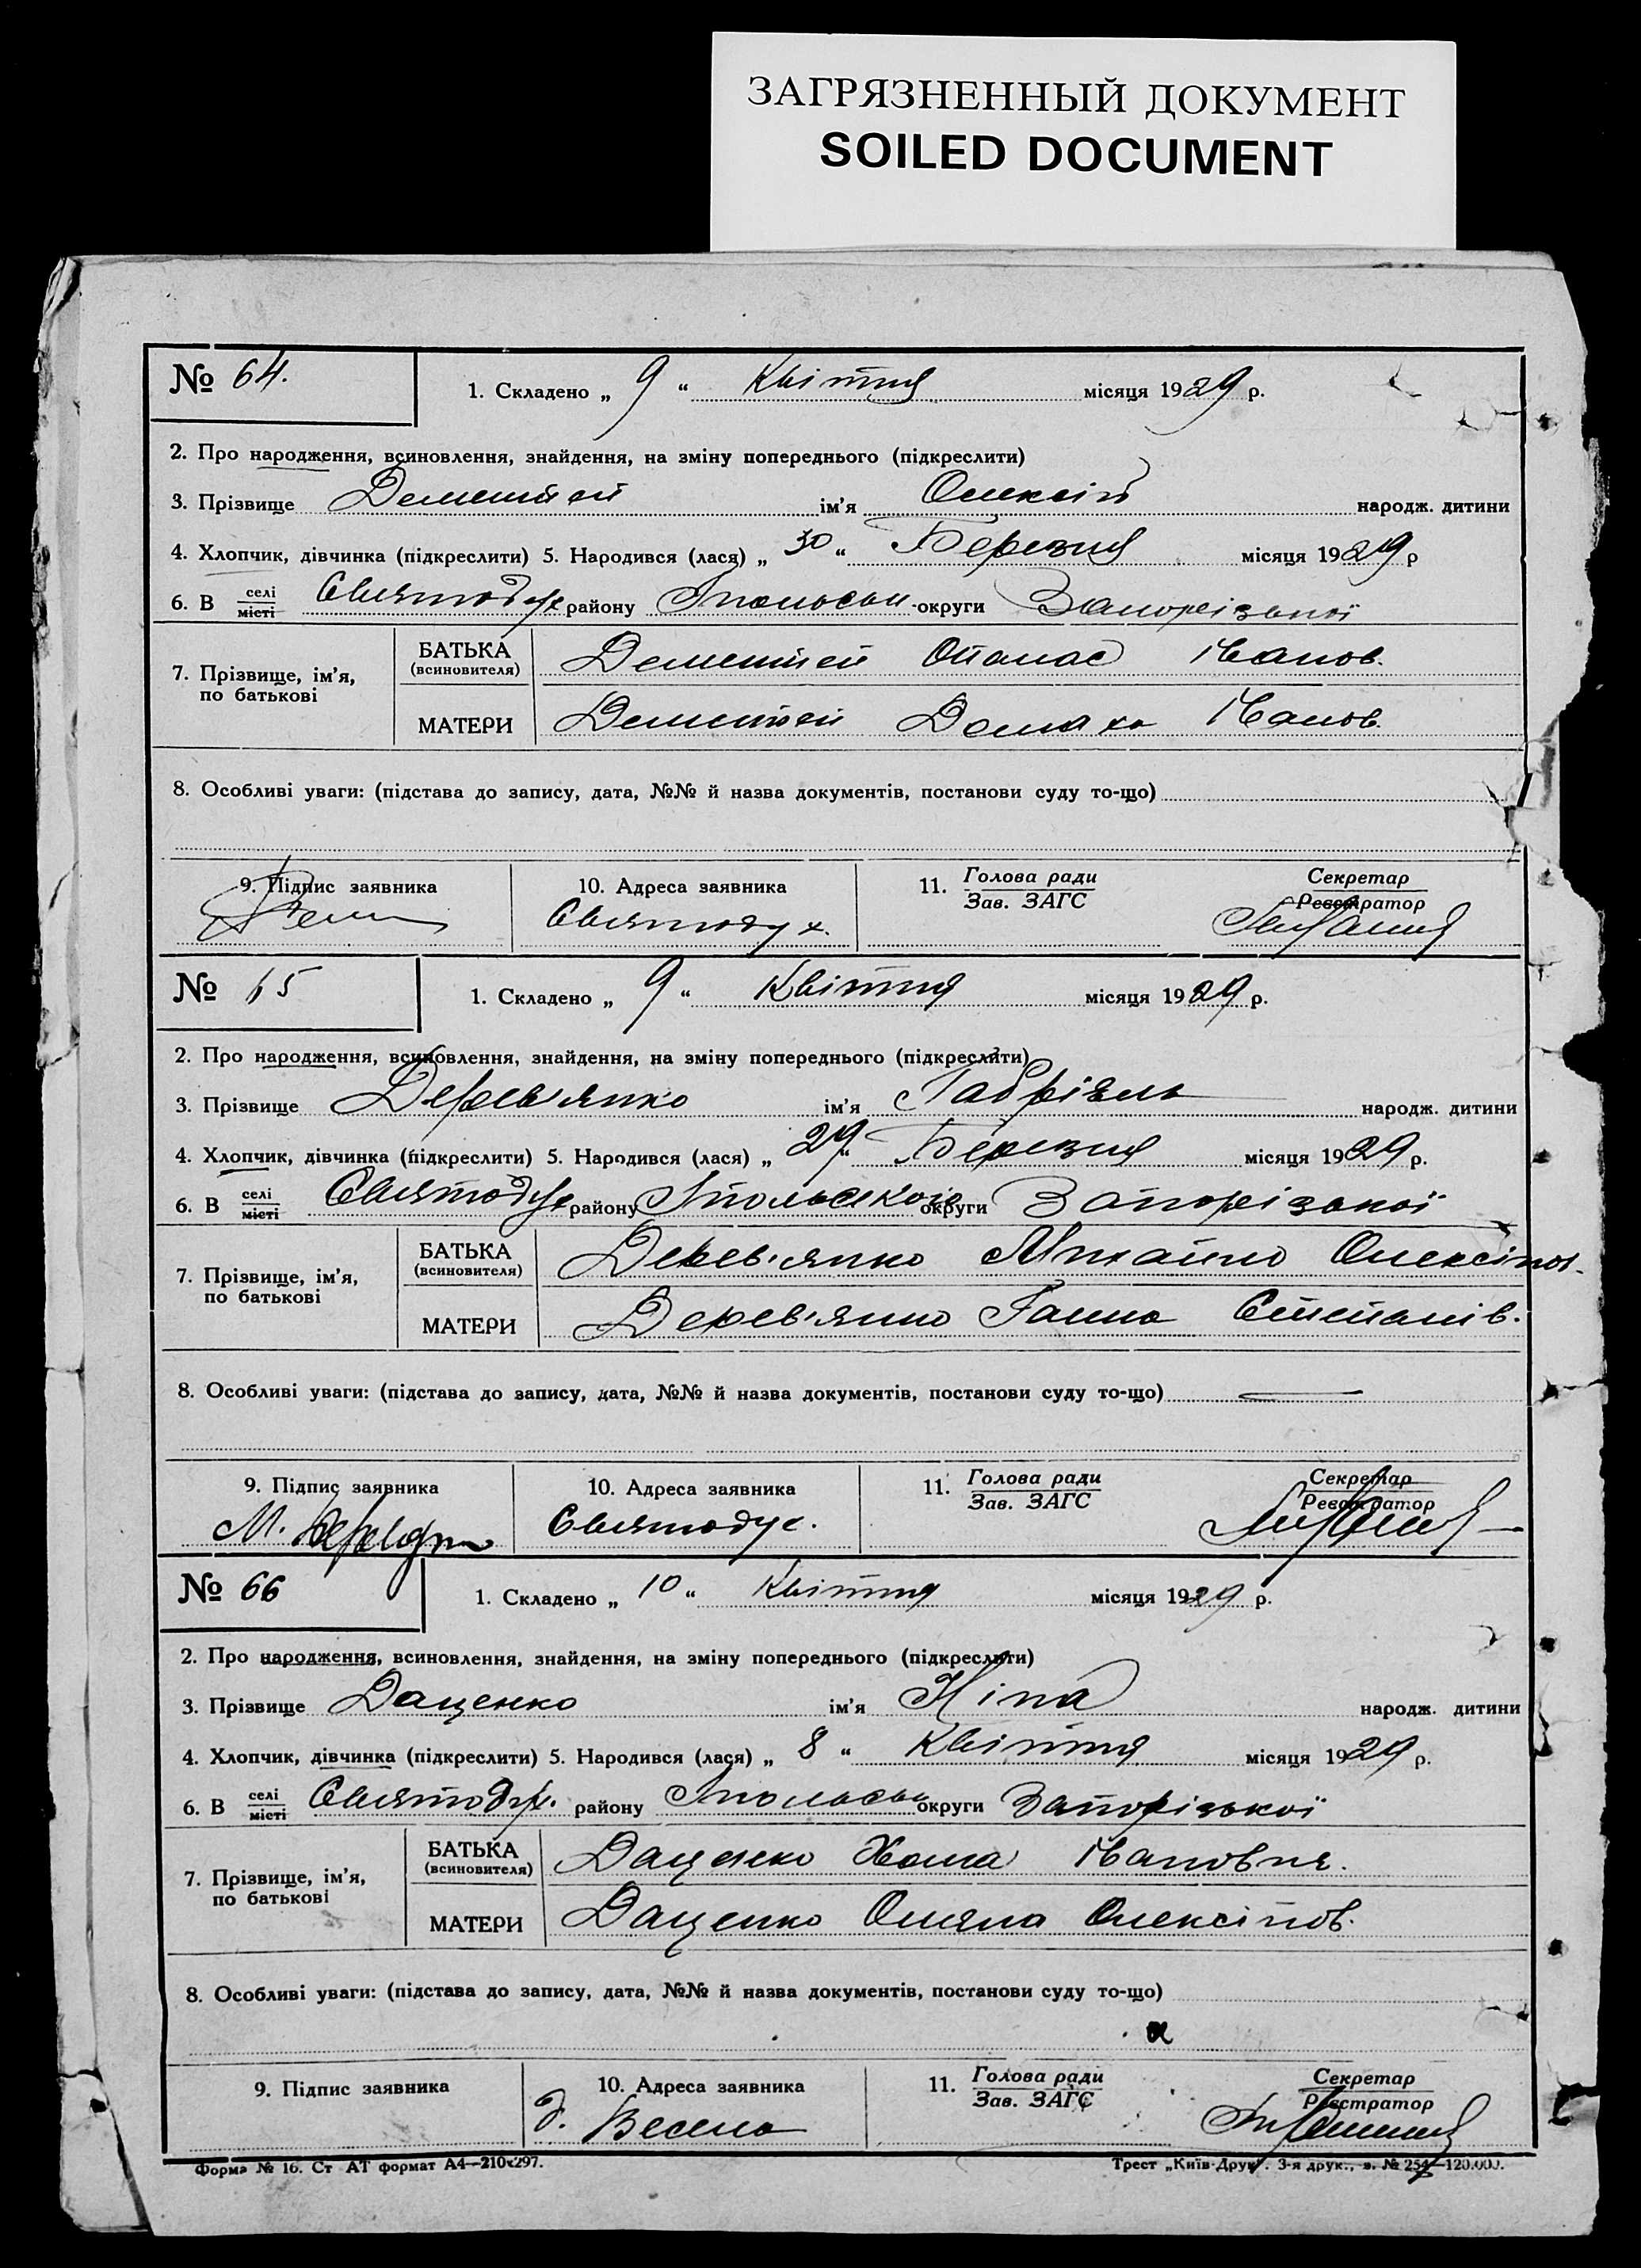 ЗАГРЯЗНЕННЫЙ ДОКУМЕНТ
SOILED DOCUMENT
№ 64.
1. Складено „ 9 “ Квітня місяця 1929 р.
2. Про народження, всиновлення, знайдення, на зміну попереднього (підкреслити)
3. Прізвище Дементей ім'я Олексій народж. дитини
4. Хлопчик, дівчинка (підкреслити) 5. Народився (лася) „ 30 “ Березня місяця 1929 р
6. В селі місті Святодух району округи Запорізької
7. Прізвище, ім'я, по батькові
БАТЬКА (всиновителя) Дементей Опанас Іванов.
МАТЕРИ Дементей Домаха Іванов.
8. Особливі уваги: (підстава до запису, дата, №№ й назва документів, постанови суду то-що)
9. Підпис заявника
10. Адреса заявника
Святодух.
11. Голова ради
Зав. ЗАГС
Секретар
Реєстратор
№ 65
1. Складено „ 9 “ Квітня місяця 1929 р.
2. Про народження, всиновлення, знайдення, на зміну попереднього (підкреслити)
3. Прізвище Дерев'янко ім'я Габріель народж. дитини
4. Хлопчик, дівчинка (підкреслити) 5. Народився (лася) „ 29 “ Березня місяця 1929 р.
6. В селі місті Святодух району округи Запорізької
7. Прізвище, ім'я, по батькові
БАТЬКА (всиновителя) Дерев'янко Михайло Олексійов.
МАТЕРИ Дерев'янко Ганна Степанів.
8. Особливі уваги: (підстава до запису, дата, №№ й назва документів, постанови суду то-що)
9. Підпис заявника
10. Адреса заявника
11. Голова ради
Зав. ЗАГС
Секретар
Реєстратор
№ 66
1. Складено „ 10 “ Квітня місяця 1929 р.
2. Про народження, всиновлення, знайдення, на зміну попереднього (підкреслити)
3. Прізвище Даценко ім'я Ніна народж. дитини
4. Хлопчик, дівчинка (підкреслити) 5. Народився (лася) „ 8 “ Квітня місяця 1929 р.
6. В селі місті Святодух. району округи Запорізької
7. Прізвище, ім'я, по батькові
БАТЬКА (всиновителя) Даценко Хома Іванович.
МАТЕРИ Даценко Оляна Олексійов.
8. Особливі уваги: (підстава до запису, дата, №№ й назва документів, постанови суду то-що)
9. Підпис заявника
10. Адреса заявника
д. Весела
11. Голова ради
Зав. ЗАГС
Секретар
Реєстратор
Форма № 16. Ст АТ формат А4—210х297.
Трест „Київ-Друк“. 3-я друк., з. № 254—120.000.